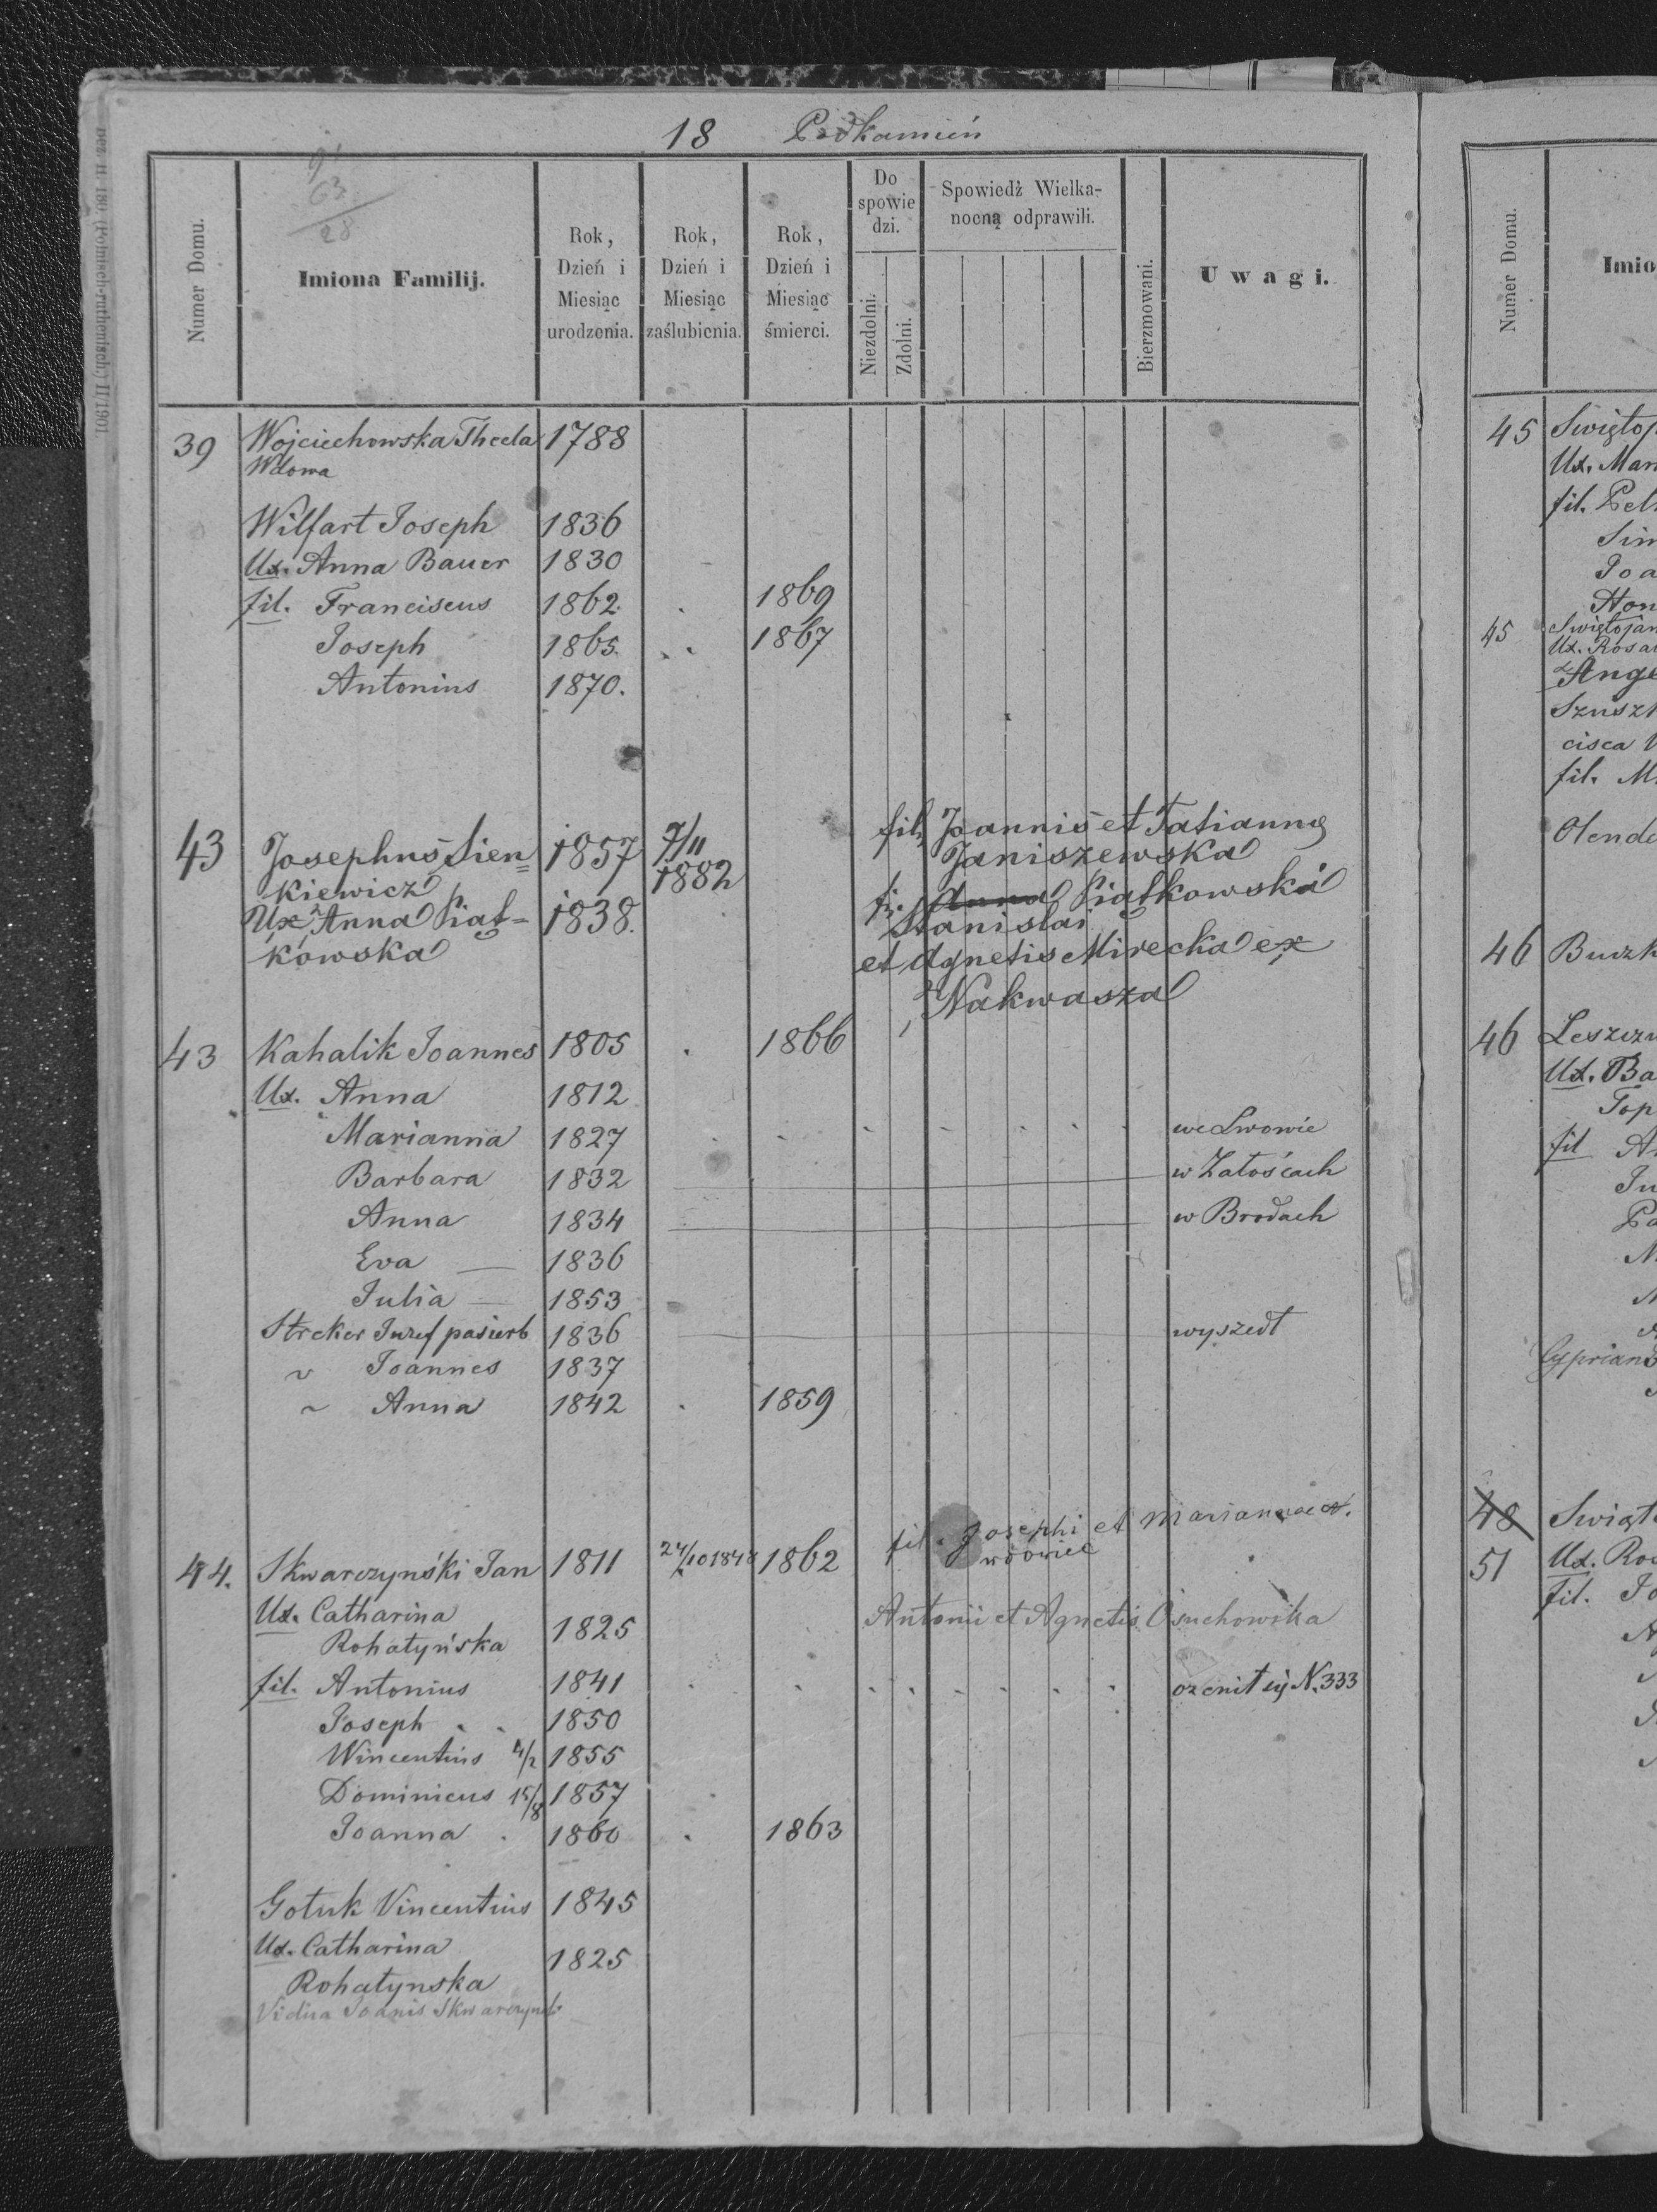 18 Podkamień
9
63
28
Numer Domu.
Imiona Familij.
Rok, Dzień i Miesiąc urodzenia.
Rok, Dzień i Miesiąc zaślubienia.
Rok, Dzień i Miesiąc śmierci.
Do spowiedzi.
Niezdolni.
Zdolni.
Spowiedź Wielkanocną odprawili.
Bierzmowani.
Uwagi.
39 Wojciechowska Thecla 1788
Wdowa
Wilfart Joseph 1836
Ux. Anna Bauer 1830
fil. Franciscus 1862 1869
Joseph 1865 1867
Antonius 1870.
43 Josephus Sien= 1857 7/11 1882 fil. Joannis et Tatianny
kiewicz Janiszewska
Ux Anna Piąt= 1838. fi. Anna Piątkowska
kowska Stanislai
et Agnetis Mirecka ex
Nakwasza
43 Kahalik Joannes 1805 1866
Ux. Anna 1812
Marianna 1827 we Lwowie
Barbara 1832 w Załoścach
Anna 1834 w Brodach
Eva 1836
Julia 1853
Streker Juzef pasierb 1836 wyszedł
Joannes 1837
Anna 1842 1859
fil. Josephi et Mariannae
44. Skwarczyński Jan 1811 24/10 1848 1862 wdowiec
Ux. Catharina
Rohatyńska 1825 Antonii et Agnetis Osuchowska
fil. Antonius 1841 ożenił się N. 333
Joseph 1850
Wincentius 4/2 1855
Dominicus 15/8 1857
Joanna 1860 1863
Gotuk Vincentius 1845
Ux. Catharina
Rohatynska 1825
Vidua Joanis Skwarczynski
Numer Domu.
Imio
45 Swiętoj
Ux. Mar
fil. Pet
Sim
Joa
Hon
45 Swiętojan
Ux. Rosa
Ange
Szuszk
cisca
fil. M
Olende
46 Buczk
46 Leszcz
Ux. Ba
Top
fil A
Ju
Pa
Cyprian
48 Swięt
51 Ux. Ro
fil. Jo